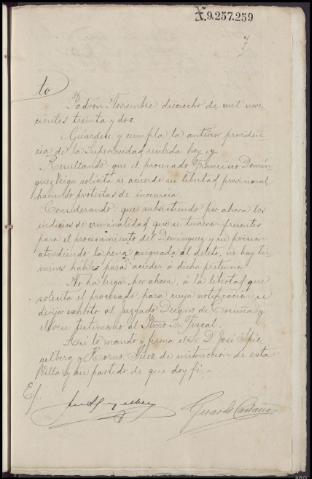 X.9.257.259
to
Padrón Noviembre dieciocho de mil nove
cientos treinta y dos.
Guárdese y cumpla la anterior providen
cia de la Superioridad recibida hoy, y
Resultando que el procesado Francisco Domín
guez Veiga solicita se acuerde su libertad provisional
haciendo protestas de inocencia
Considerando que subsistiendo por ahora los
indicios de criminalidad que se tuvieron presentes
para el procesamiento del Domínguez y su prisión
atendiendo la pena asignada al delito, no hay tér
minos hábiles para acceder a dicha pretensión
No ha lugar, por ahora, á la libertad que
solicita el procesado para cuya notificación se
dirija exhorto al Juzgado Decano de Coruña y
testimonio al Iltmo Sr. Fiscal.
Así lo mandó y firma el Sr. D. José
y Juez de instrucción de esta
Villa y su partido de que doy fé.